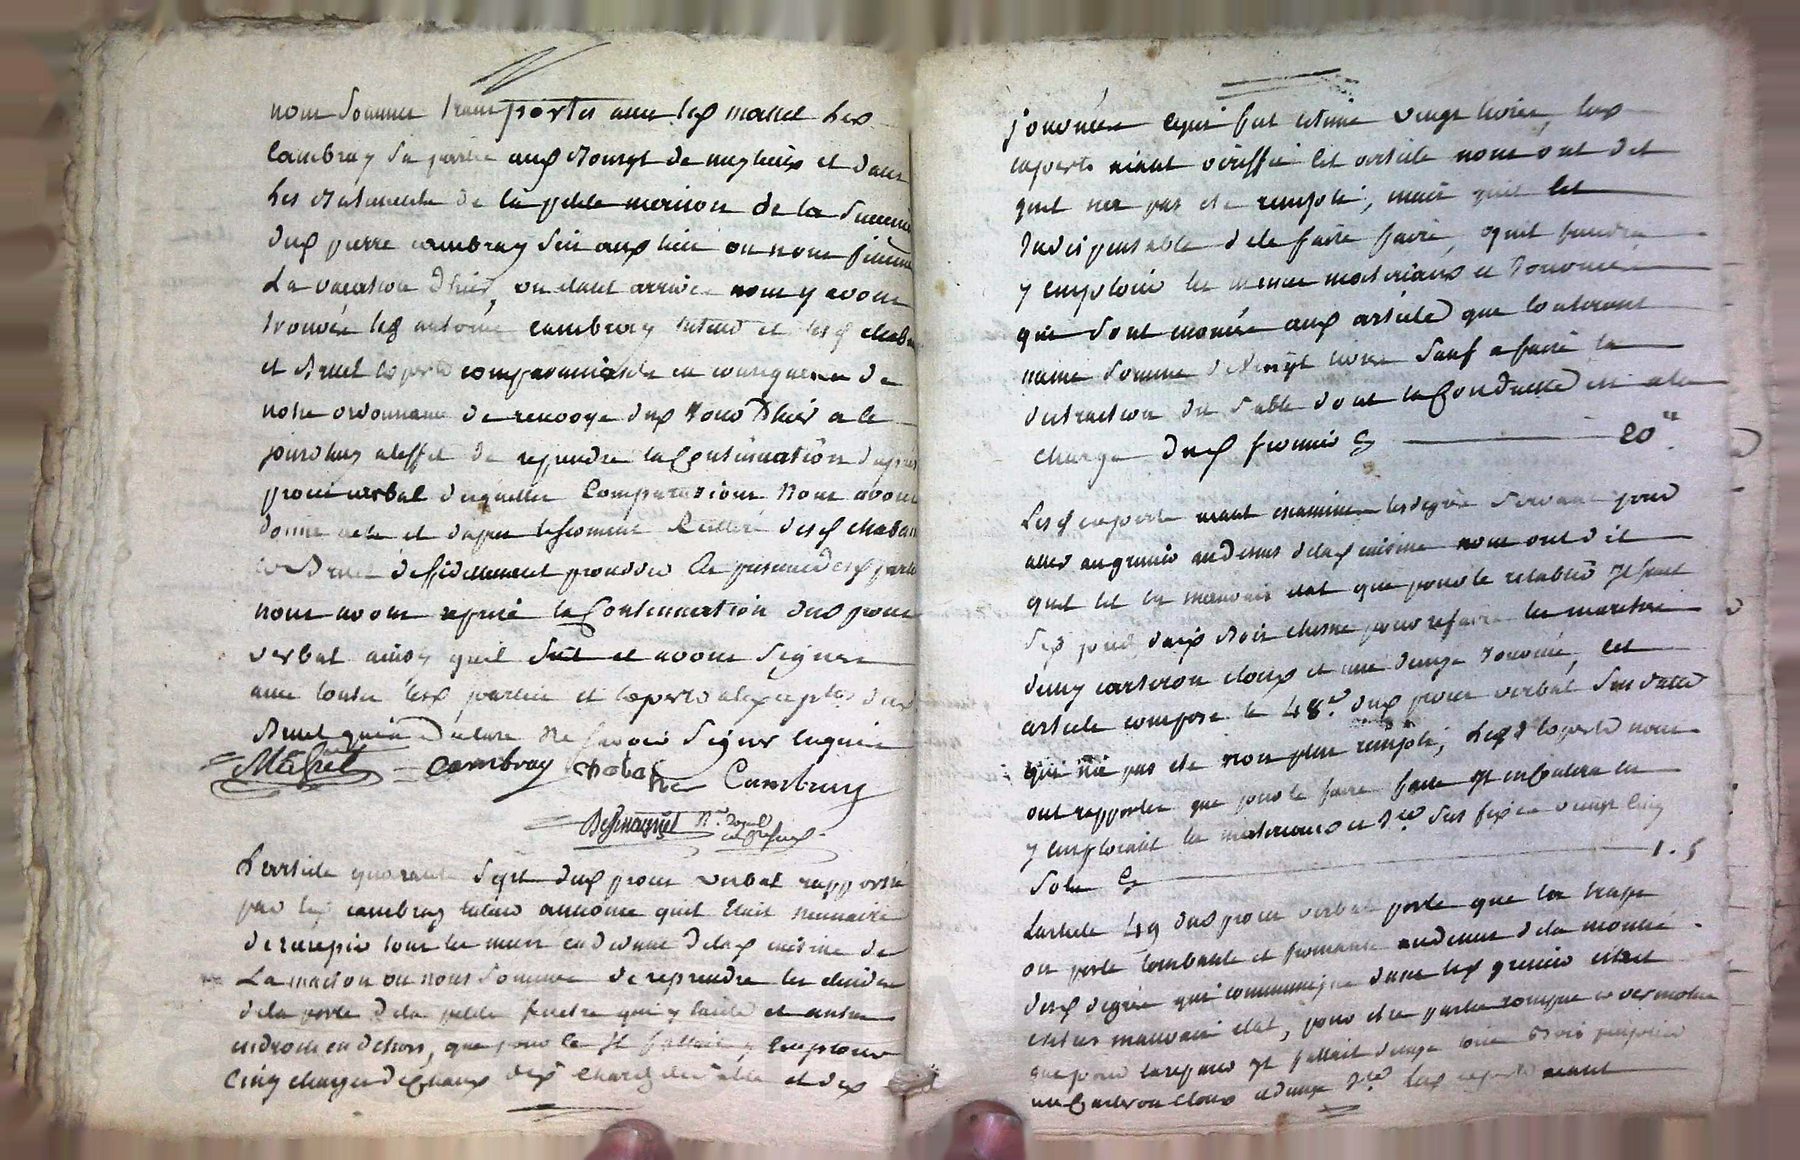 nous sommes transportes avec lesd massel led
Cambray sa partie aud bourgt de meylieux et dans
les batiments de la petite maison de la succession
dud pierre cambray sis aud lieu ou nous finimes
La vacation d'hier, ou etant arrivés nous y avons
trouvés led antoine cambray tuteur et lesd chaban
et Bruel experts comparamment en consequence de
notre ordonnance de renvoye dud jour d'hier a ce
jourdhuy a leffet de reprendre la Continuation dud
proces verbal desquelles Comparutions Nous avons
donné acte et dapres le serment Reitteré desd chaban
et Bruel de fidellement proceder En presence desd parties
nous avons repris la Continuation dud proces
verbal ainsy quil suit et avons signés
avec toutes lesd parties et experts a lexception dud
Bruel qui a declare ne savoir signer enquis
Massel Cambray Chaban Cambray
Desmagnet
L'article quarante sept dud proces verbal rapporté
par led cambray tuteur annonce quil etait necessaire
de recrepir tous les murs en dedans de lad cuisine de
La maison ou nous sommes de reprendre les
de la porte de la petite fenetre qui y and autres
endroits en dehors, que pour ce il fallait y employer
Cinq charges de Chaux dix chards de sable et dix
journées ce qui fut estimé vingt livres, lesd
experts aiant vériffié cet article nous ont dit
quil nea pas ete remplie, mais quil est
Indispensable de le faire faire, quil faudra
y emploier les memes materiaux et journées
qui sont enoncés aud article que couteront
meme somme de Vingt livres sauf a faire la
distraction du sable dont la Conduitte est a la
charge dud fermier Cy 20"
Lesd experts aiant examinés les degrés servant pour
aller au grenier au dessus de lad cuisine nous ont dit
quil est en mauvais etat que pour le retablir il faut
six pieds daix bois chesne pour refaire les marches
demy carteron cloux et une demye journée, cet
article compose le 48e dud proces verbal sus datté
qui nea pas ete non plus remplie, lesd experts nous
ont rapportés que pour le faire faire il en Coutera en
y emploiant les materiaux et Jée sus fixés vingt Cinq
sols Cy 1. 5
Larticle 49 dud proces verbal porte que la trape
ou porte tombante et fermante au dessus de la montée
desd degrés qui communique dans led grenier etait
en tres mauvais etat, pour etre partie rompue et vermolue
que pour la reparer il fallait demye toise Bois
un Carteron Cloux et demye Jée lesd experts aiant